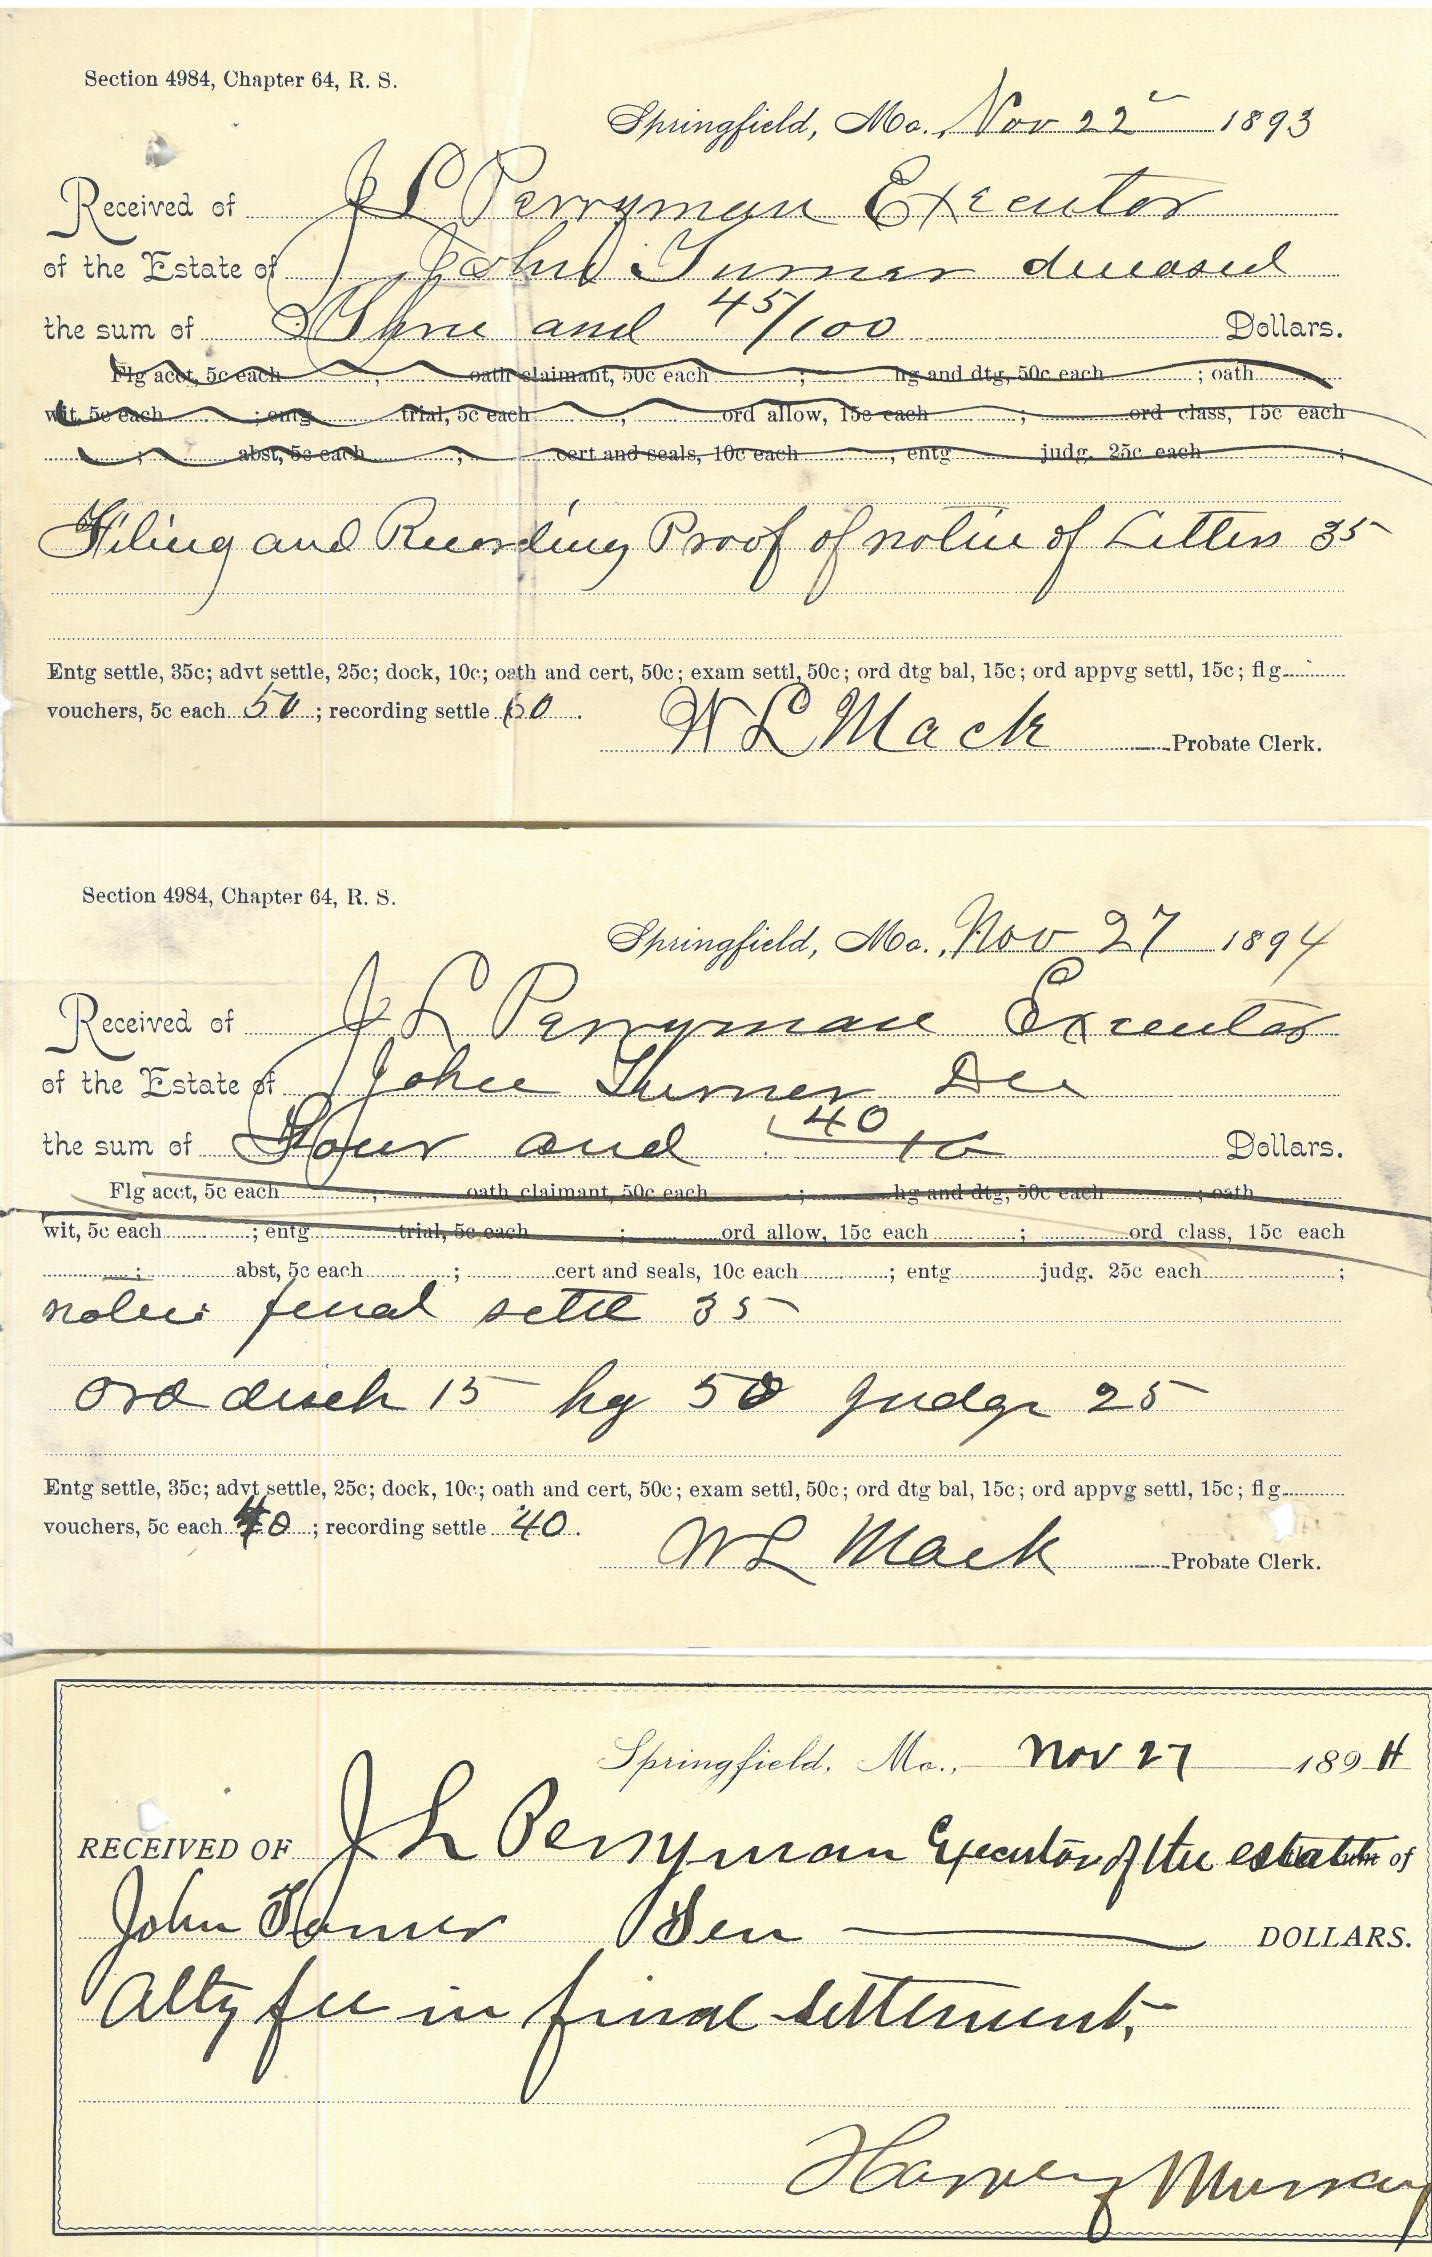 Section 4984, Chapter 64, R. S.
Springfield, Mo., Nov 22 1893
Received of J L Perryman Executor
of the Estate of John Turner deceased
the sum of Three and 45/100 Dollars.
Flg acct, 5c each ; oath claimant, 50c each ; hg and dtg, 50c each ; oath
wit, 5c each ; entg trial, 5c each ; ord allow, 15c each ; ord class, 15c each
; abst, 5c each ; cert and seals, 10c each ; entg judg. 25c each ;
Filing and Recording Proof of notice of Letters 35
Entg settle, 35c; advt settle, 25c; dock, 10c; oath and cert, 50c; exam settl, 50c; ord dtg bal, 15c; ord appvg settl, 15c; flg
vouchers, 5c each 50 ; recording settle 60 .
W L Mack Probate Clerk.
Section 4984, Chapter 64, R. S.
Springfield, Mo., Nov 27 1894
Received of J L Perryman Executor
of the Estate of John Turner Dec
the sum of Four and 40 Dollars.
Flg acct, 5c each ; oath claimant, 50c each ; hg and dtg, 50c each ; oath
wit, 5c each ; entg trial, 5c each ; ord allow, 15c each ; ord class, 15c each
; abst, 5c each ; cert and seals, 10c each ; entg judg. 25c each ;
notice final settl 35
ord disch 15 hg 50 judgr 25
Entg settle, 35c; advt settle, 25c; dock, 10c; oath and cert, 50c; exam settl, 50c; ord dtg bal, 15c; ord appvg settl, 15c; flg
vouchers, 5c each 40 ; recording settle 40 .
W L Mack Probate Clerk.
Springfield, Mo., Nov 27 1894
RECEIVED OF J L Perryman Executor of the estate of
John Turner Ten DOLLARS.
Atty fee in final settlement,
Harvey Murray